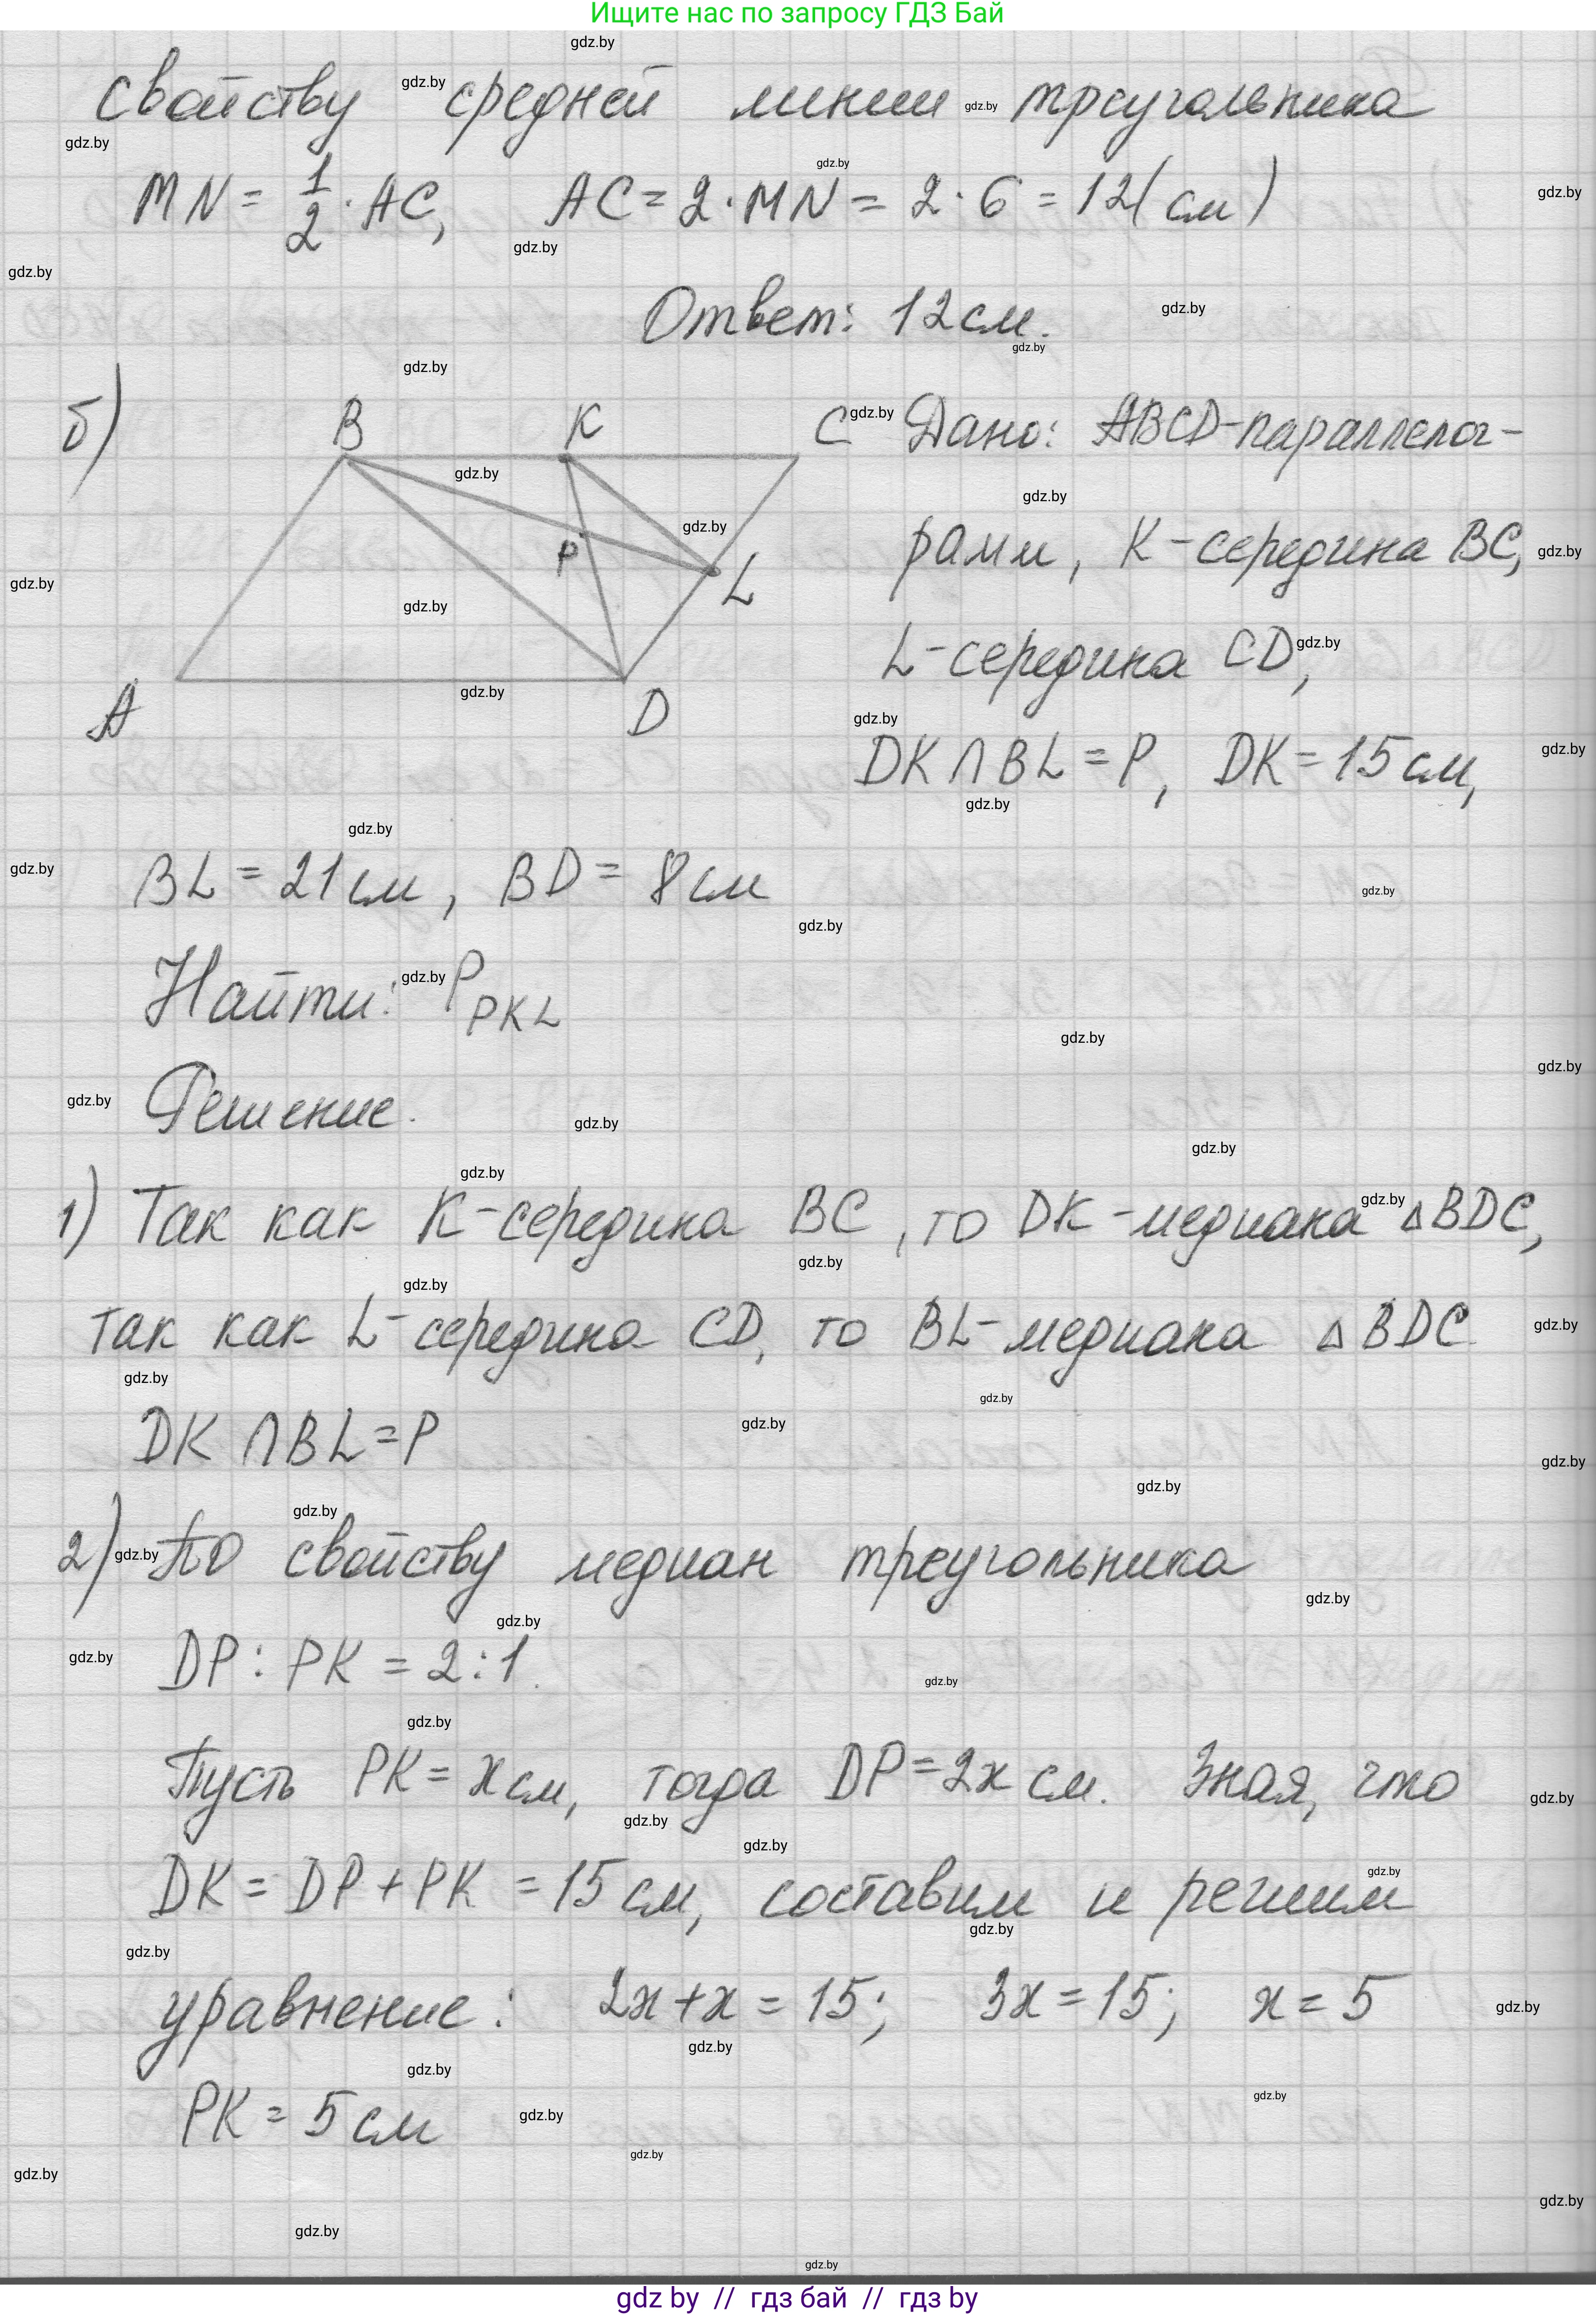 Ищите нас по запросу ГДЗ Бай
свойству средней линии треугольника
MN = 1/2 · AC, AC = 2 · MN = 2 · 6 = 12 (см)
Ответ: 12 см.
б) B K C P L A D
Дано: ABCD-параллелог-
рамм, K-середина BC,
L-середина CD,
DK ∩ BL = P, DK = 15 см,
BL = 21 см, BD = 8 см
Найти: P PKL
Решение.
1) Так как K-середина BC, то DK-медиана △BDC,
так как L-середина CD, то BL-медиана △BDC
DK ∩ BL = P
2) По свойству медиан треугольника
DP : PK = 2 : 1.
Пусть PK = x см, тогда DP = 2x см. Зная, что
DK = DP + PK = 15 см, составим и решим
уравнение: 2x + x = 15; 3x = 15; x = 5
PK = 5 см
gdz by // гдз бай // гдз by